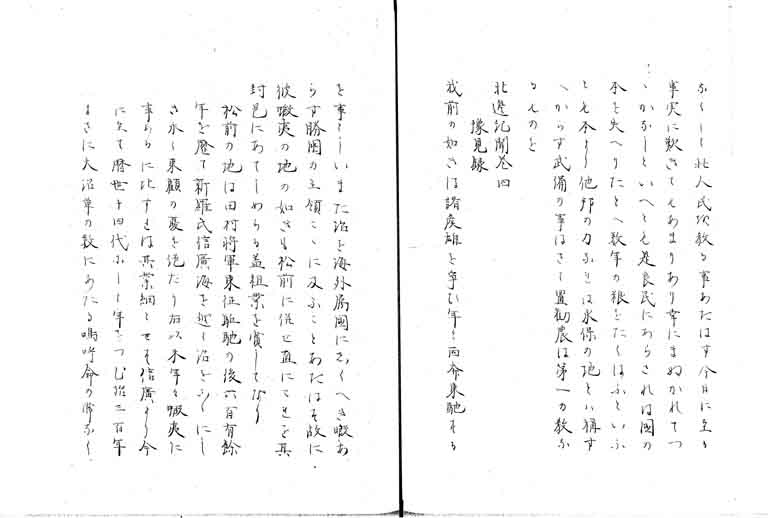 なくして北人民次教る事あたはす今日に至る
事実に歎きてもあまりあり幸にまぬかれてつ
つかなしといへとも是良民にあらされは国の
本を失へりたとへ数年の粮をたくはふといふ
とも本より他邦の力なきは永保の地とハ稱す
へからす武備の事はさし置勧農は第一の教な
るものを
北邊記聞巻四
豫見録
我前の如きは諸侯雄を争ひ年々西命東馳する
を事としいまた治を海外属国にしくへき暇あ
らす勝国の主領こゝに及ふことあたはす故に
彼蝦夷の地の如きも松前に従せ直にてもを其
封邑にあてしめらる蓋祖業を賞してなり
松前の地は田村将軍東征駈馳の後六百有餘
年を歴て新羅氏信廣海を越し治をしくにし
き永く東顧の憂を絶たり右以本年を蝦夷に
事あらに比すれは其業細とせそ信廣より今
に至て暦世十四代にして年をつむ殆三百年
まさに大沼章の数にあたる嗚呼命の常なく